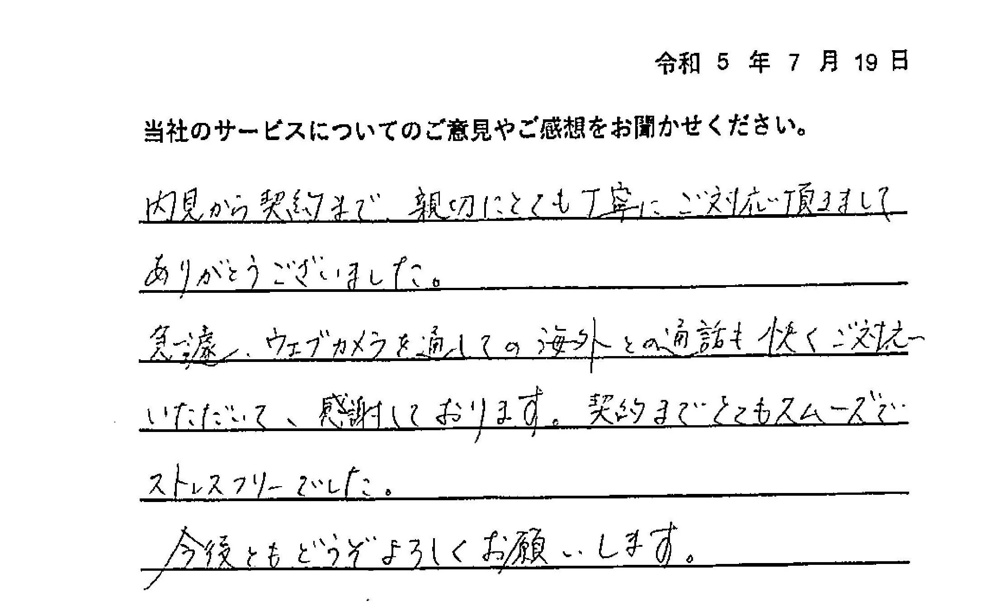 令和 5 年 7 月 19 日
当社のサービスについてのご意見やご感想をお聞かせください。
内見から契約まで、親切にとても丁寧にご対応頂きまして
ありがとうございました。
急遽、ウェブカメラを通しての海外との通話も快くご対応
いただいて、感謝しております。契約までとてもスムーズで
ストレスフリーでした。
今後ともどうぞよろしくお願いします。